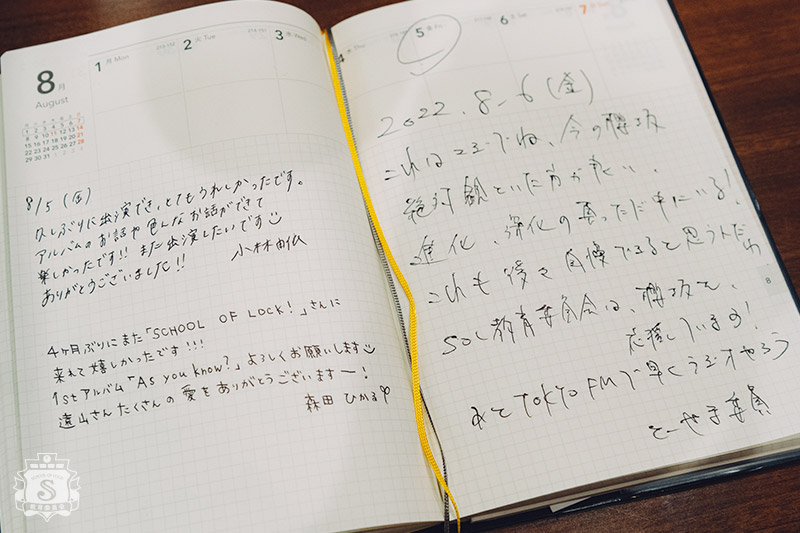 8月
August
1 月 Mon
2 火 Tue
3 水 Wed
4
5
6 土
7
8/5 (金)
久しぶりに出演でき、とてもうれしかったです。
アルバムのお話や色んなお話ができて
楽しかったです!! また出演したいです
ありがとうございました!!
小林由依
4ヶ月ぶりにまた「SCHOOL OF LOCK!」さんに
来れて嬉しかったです!!!
1stアルバム「As you know?」よろしくお願いします
遠山さんたくさんの愛をありがとうございますー!
森田 ひかる♡
2022.8.6 (金)
これはマジでね、今の櫻坂
絶対観といた方が良い、
進化、強化の真っただ中にいる!
これも後々自慢できると思うんだわ
SOL教育委員会は、櫻坂を、
応援しています!
TOKYO FMで早くラジオやろう
とーやま委員
8
S